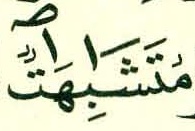 مُتَشَٰبِهَٰتٌۖ